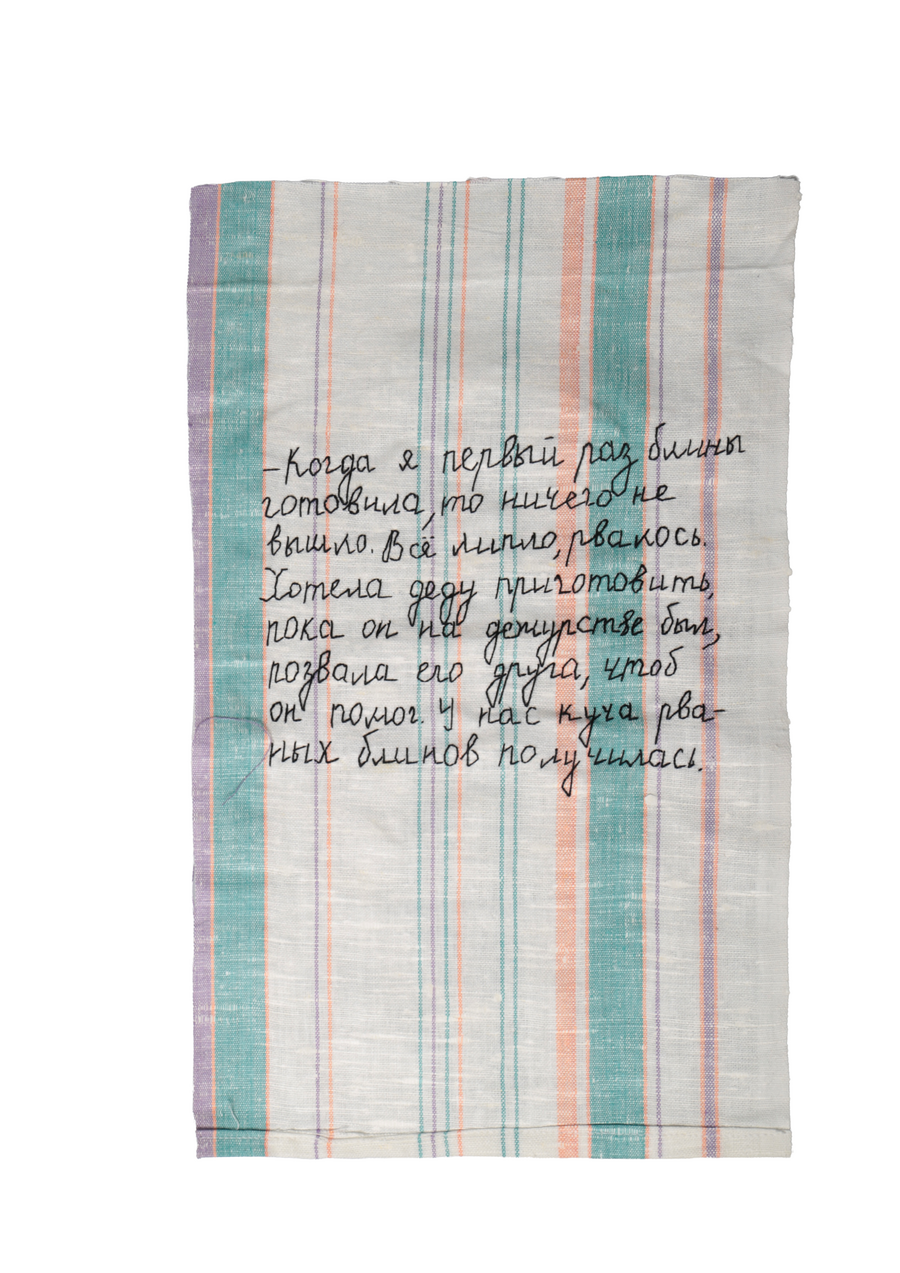 –Когда я первый раз блины
готовила, то ничего не
вышло. Всё липло, рвалось.
Хотела деду приготовить,
пока он на дежурстве был,
позвала его друга, чтоб
он помог. У нас куча рва-
ных блинов получилась.